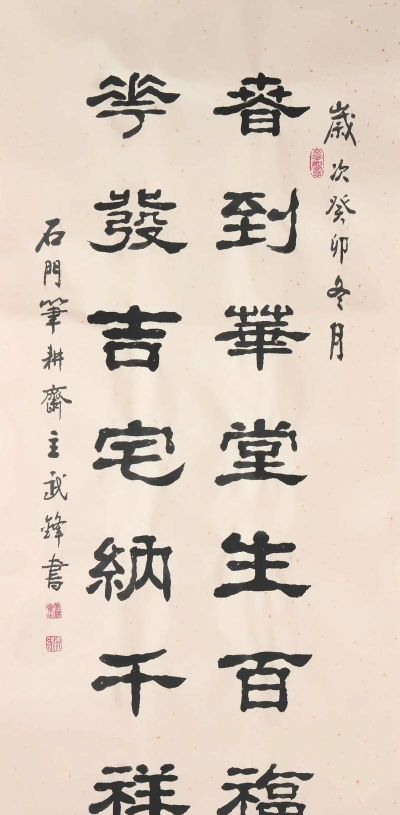 歲次癸卯冬月
春到華堂生百福
花發吉宅納千祥
石門筆耕齋主武鋒書